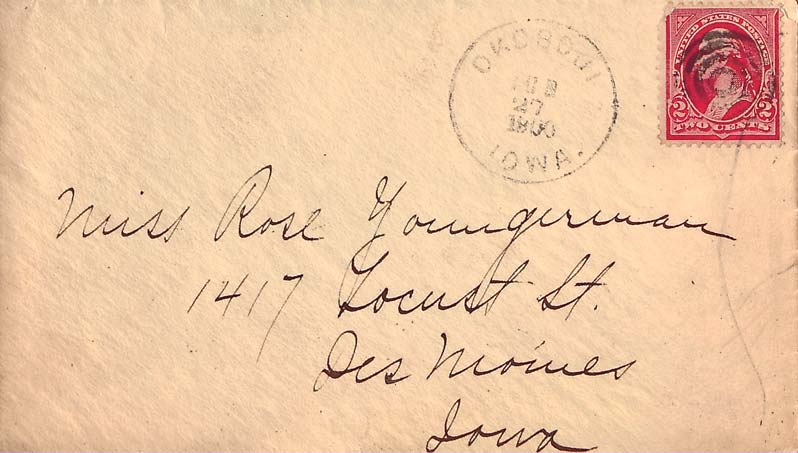 OKOBOJI
27
1900
IOWA.
UNITED STATES POSTAGE
2 2
TWO CENTS
Miss Rose Youngerman
1417 Locust St.
Des Moines
Iowa